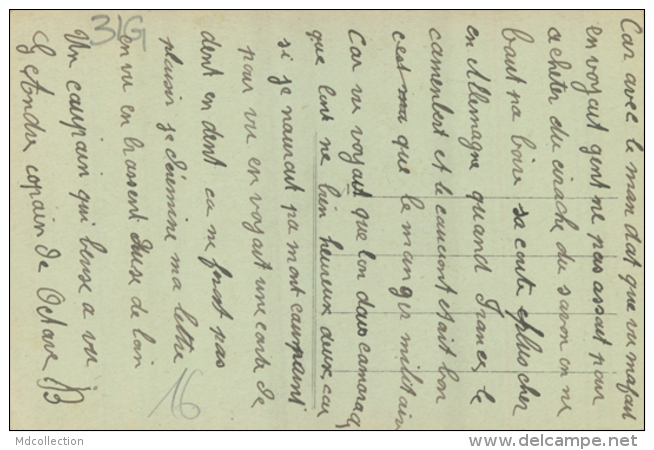 Car avec le mandat que vu mafait
en voyait gent ne pas assait pour
acheter du cirache du savon on ne
baut pa boire sa coute eplus cher
en Allemagne quand France le
camenbert et le caucont etait bon
c'est ma que le manger militair
Car vu voyait que lon daus camaraq
que lont ne bien heureux deux car
si je naurait pa mont caupaint
pour vu en voyait une carte de
dent en dent ca ne forat pas
plaisir je termine ma lettre
en vu en brassent de loin
Un caupain qui bense a vu
copain de Octave B
31G
16
Mdcollection
www.delcampe.net